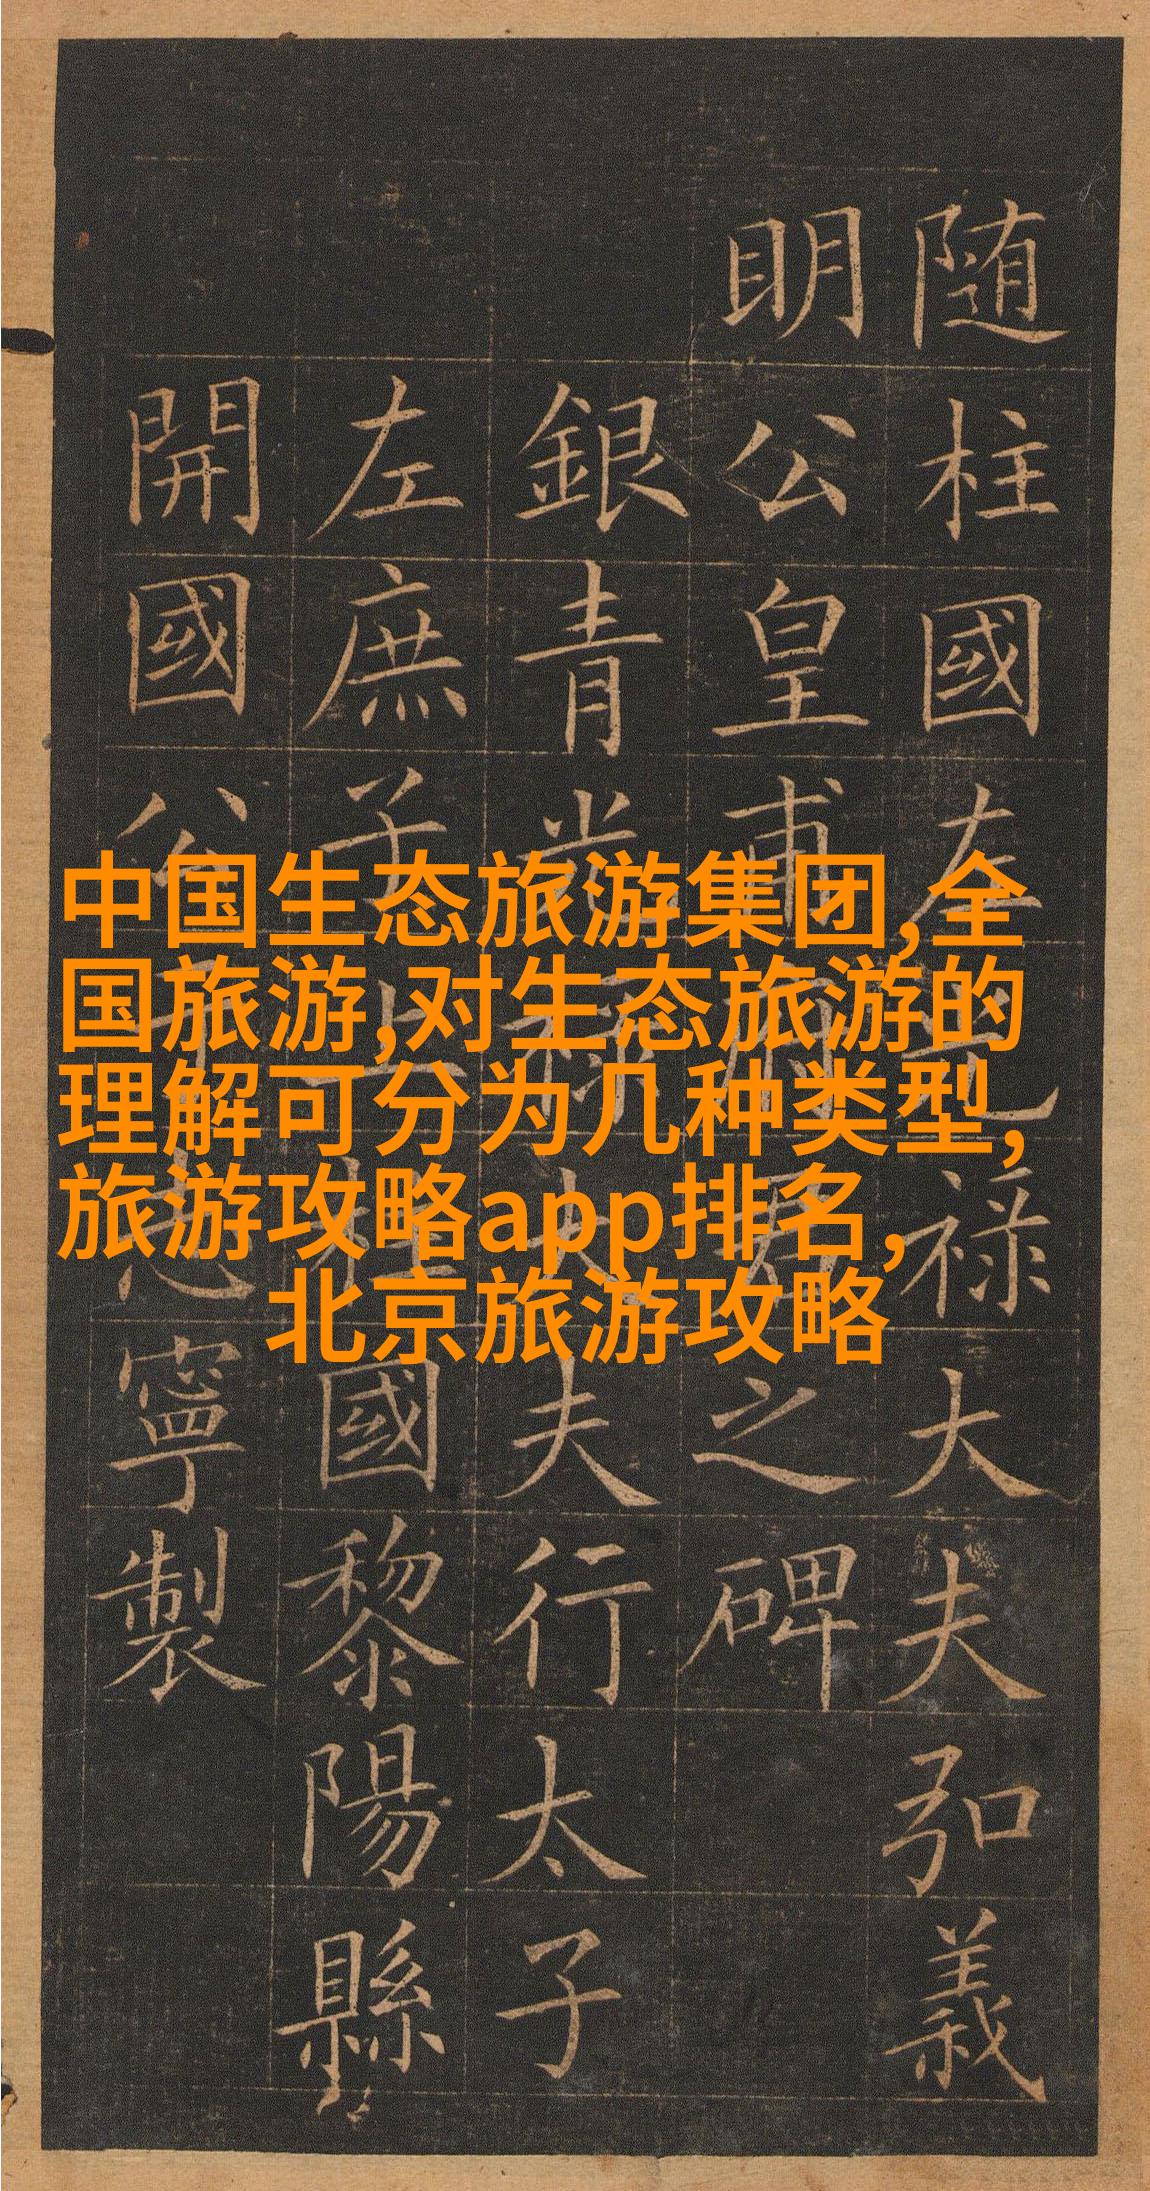 随柱國左光禄大夫弘義
明公皇甫府君之碑
銀青光禄大夫行太子
左庶子上柱國黎陽縣
開國公于志寧製
中国生态旅游集团,全
国旅游,对生态旅游的
理解可分为几种类型,
旅游攻略app排名,
北京旅游攻略